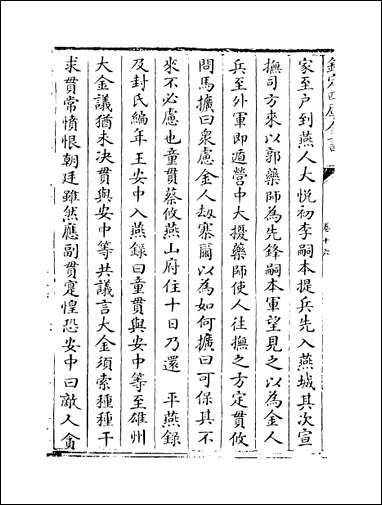 欽定四庫全書
卷十六
家至户到燕人大悦初李嗣本提兵先入燕城其次宣
撫司方來以郭藥師為先鋒嗣本軍望見之以為金人
兵至外軍即遁營中大擾藥師使人往撫之方定貫攸
問馬擴曰衆慮金人刼寨爾以為如何擴曰可保其不
來不必慮也童貫蔡攸燕山府住十日乃還　平燕録
及封氏編年王安中入燕録曰童貫與安中等至雄州
大金議猶未決貫與安中等共議言大金須索種種干
求貫常憤恨朝廷雖然應副貫寔惶恐安中曰敵人貪